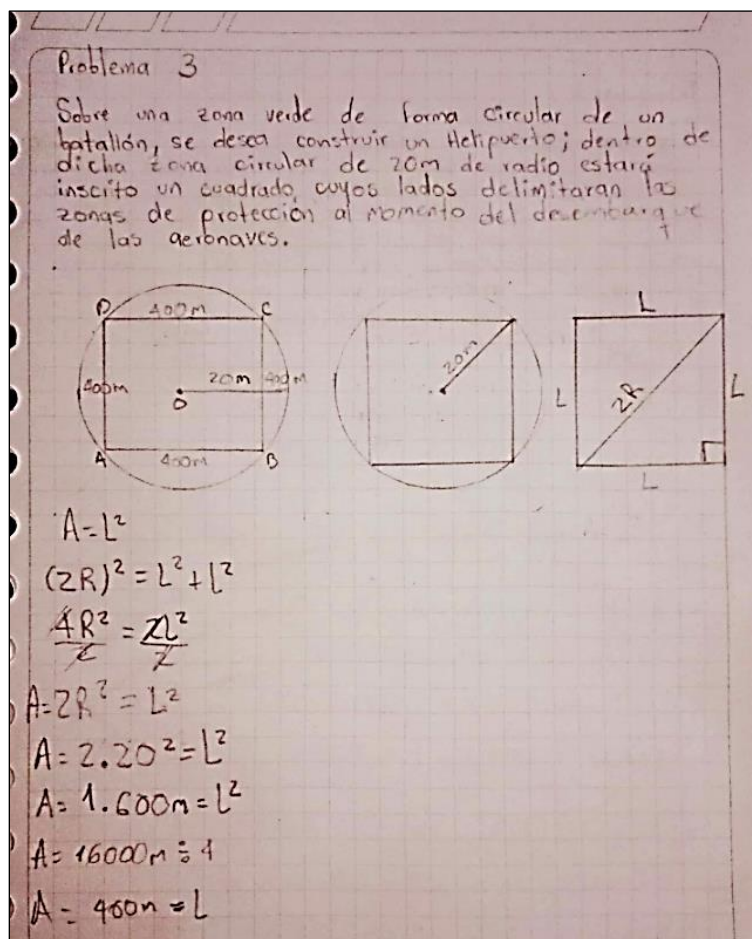 Problema 3
Sobre una zona verde de forma circular de un
batallón, se desea construir un Helipuerto; dentro de
dicha zona circular de 20m de radio estará
inscrito un cuadrado, cuyos lados delimitaran las
zonas de protección al momento del desembarque
de las aeronaves.
D 400m C
400m 20m 400m
O
A 400m B
20m
L
L 2R L
L
A=L²
(2R)² = L² + L²
4R²/2 = 2L²/2
A=2R² = L²
A= 2.20² = L²
A= 1.600m = L²
A= 16000m ÷ 4
A= 400m = L